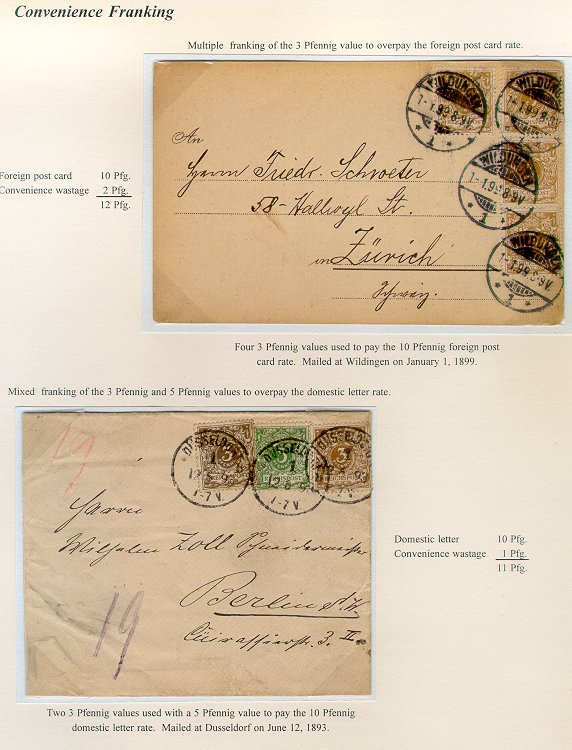 Convenience Franking
Multiple franking of the 3 Pfennig value to overpay the foreign post card rate.
Foreign post card 10 Pfg.
Convenience wastage 2 Pfg.
12 Pfg.
WILDUNGEN
1-1.99.8-9V.
* 1 *
WILDUNGEN
1-1.99.8-9V.
* 1 *
WILDUNGEN
1-1.99.8-9V
* 1 *
WILDUNGEN
1-1.99.8-9V.
* 1 *
An
Herrn Friedr. Schroeter
58- Hallwyl St.
in Zürich
Schweiz.
Four 3 Pfennig values used to pay the 10 Pfennig foreign post
card rate. Mailed at Wildingen on January 1, 1899.
Mixed franking of the 3 Pfennig and 5 Pfennig values to overpay the domestic letter rate.
DÜSSELDORF
1
7-7V
3
REICHSPOST
5
REICHSPOST
3
REICHSPOST
Herrn
Wilhelm Zoll Schneidermeister
Berlin S.W.
Cüirassierstr. 3. II
19
Domestic letter 10 Pfg.
Convenience wastage 1 Pfg.
11 Pfg.
Two 3 Pfennig values used with a 5 Pfennig value to pay the 10 Pfennig
domestic letter rate. Mailed at Dusseldorf on June 12, 1893.